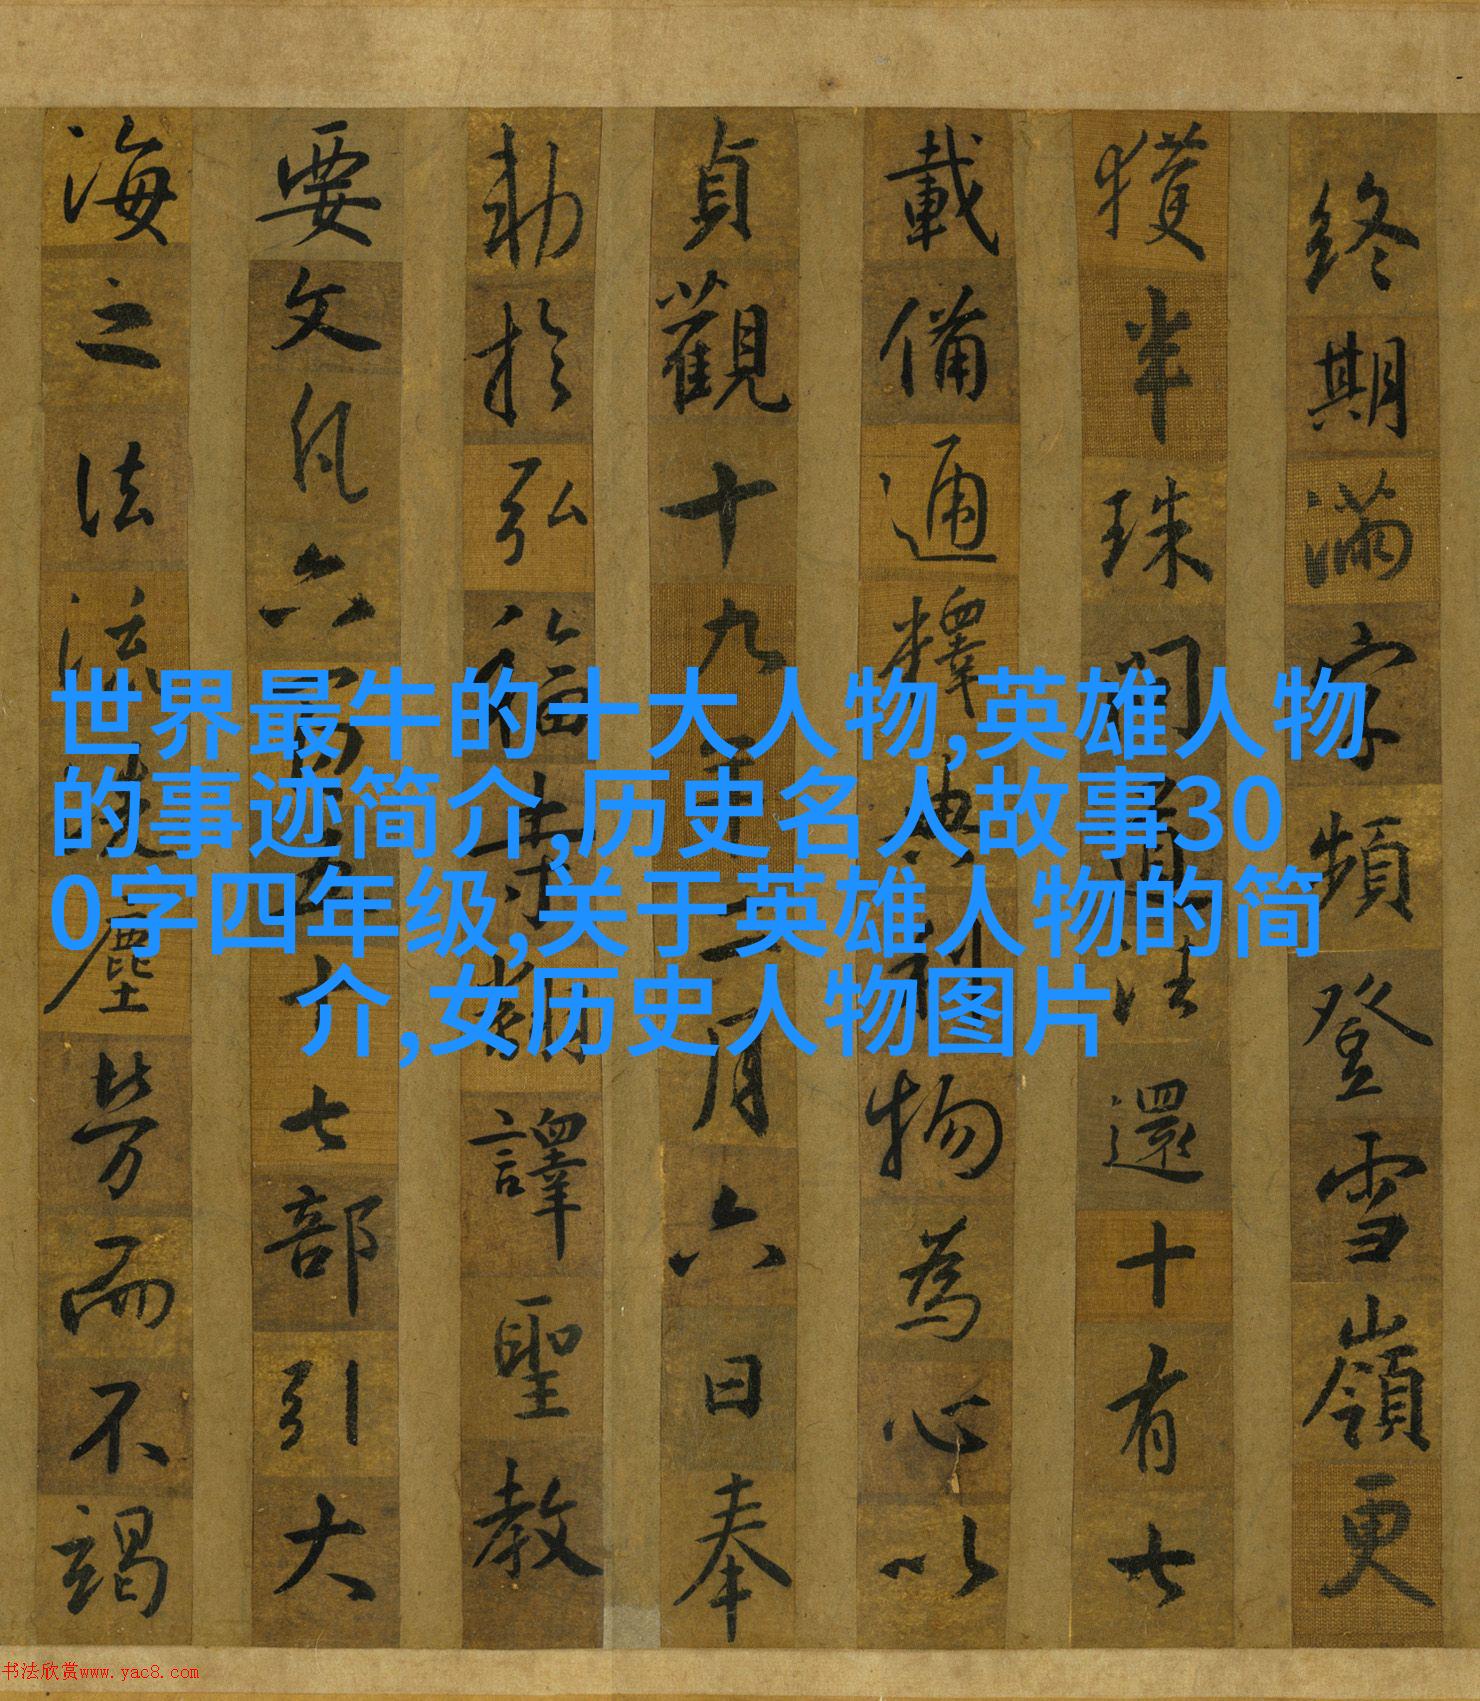 世界最牛的十大人物,英雄人物
的事迹简介,历史名人故事30
0字四年级,关于英雄人物的简
介,女历史人物图片
終期滿字頻登雪嶺更
獲半珠問道法還十有七
載備通釋典利物為心以
貞觀十九年二月六日奉
勅於弘福寺翻譯聖教
要文凡六百五十七部引大
海之法流洗塵勞而不竭
书法欣赏www.yac8.com